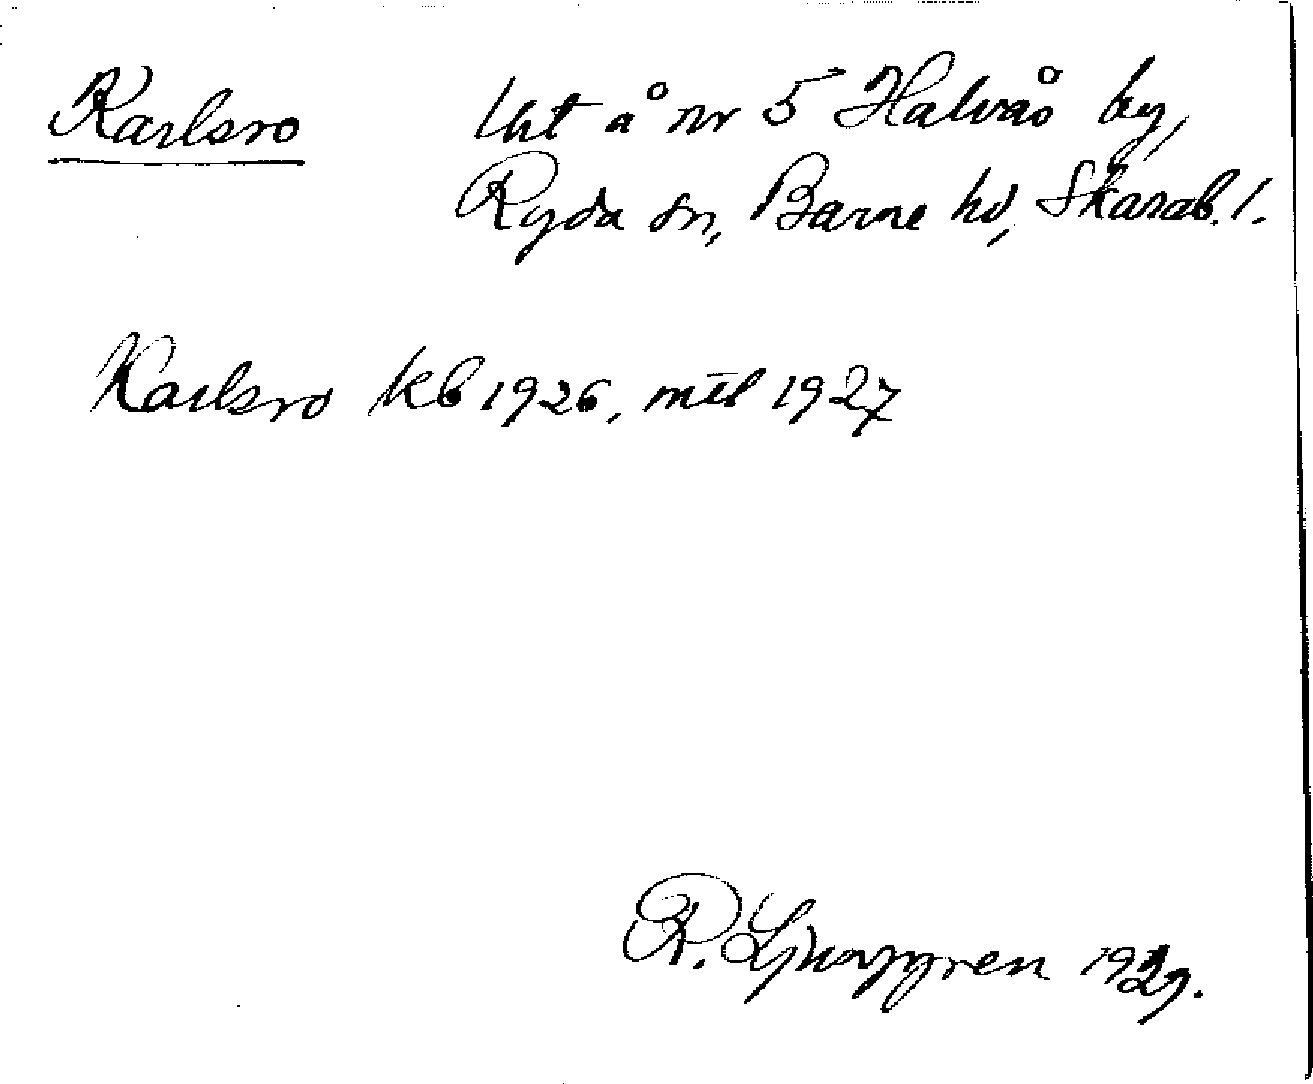 Karlsro
lht å nr 5 Halvås by,
Ryda sn, Barne hd, Skarab. l.
Karlsro kb 1926, mtl 1927
R. Ljunggren 1929.